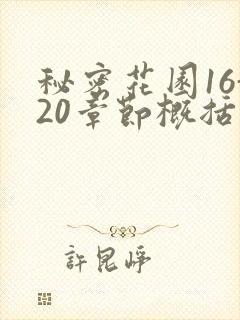 秘密花园16-
20章节概括
許昆崢